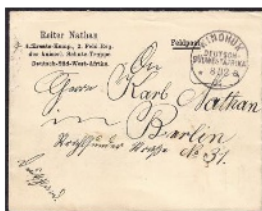 Reiter Nathan
2. Feld Reg.
der kaiserl. Schutz-Truppe
Deutsch-Süd-West-Afrika.
Feldpost
WINDHUK
DEUTSCH-
SÜDWESTAFRIKA
An
Herrn Karl Nathan
in
Berlin
No 31.